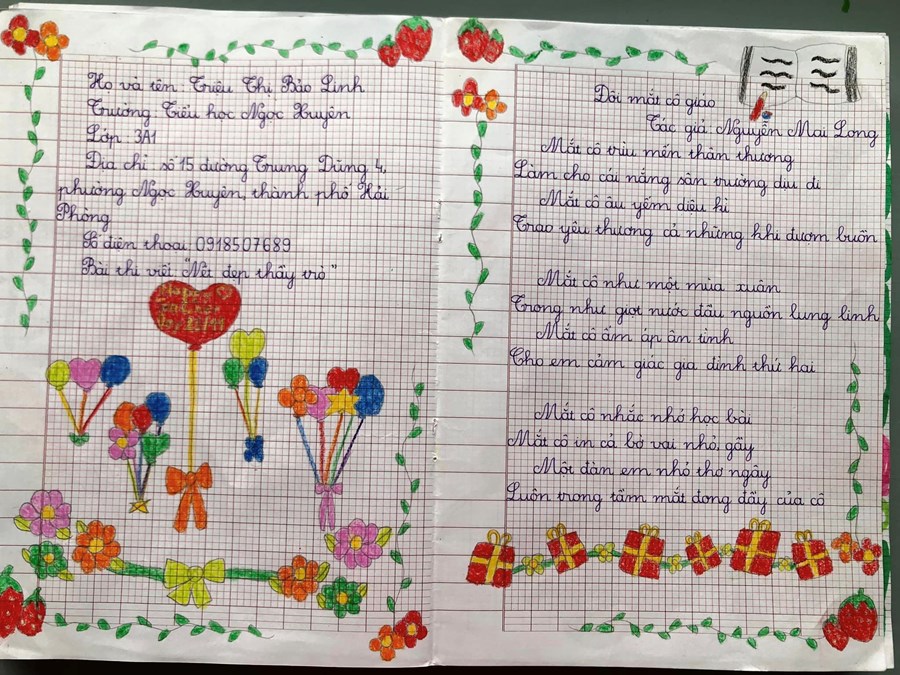 Họ và tên: Triệu Thị Bảo Linh
Trường Tiểu học Ngọc Xuyên
Lớp 3A1
Địa chỉ số 15 đường Trung Dũng 4,
phường Ngọc Xuyên, thành phố Hải
Phòng
Số điện thoại: 0918507689
Bài thi viết "Nét đẹp thầy trò"
Happy
20/11
Đôi mắt cô giáo
Tác giả: Nguyễn Mai Long
Mắt cô trìu mến thân thương
Làm cho cái nắng sân trường dịu đi
Mắt cô âu yếm diệu kì
Trao yêu thương cả những khi đượm buồn
Mắt cô như một mùa xuân
Trong như giọt nước đầu nguồn lung linh
Mắt cô ấm áp ân tình
Cho em cảm giác gia đình thứ hai
Mắt cô nhắc nhở học bài
Mắt cô in cả bờ vai nhỏ, gầy
Một đàn em nhỏ thơ ngây
Luôn trong tầm mắt đong đầy của cô